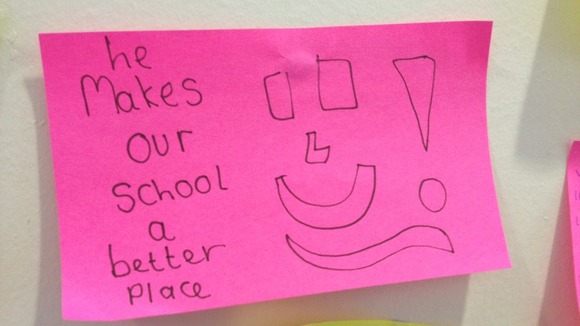 he
Makes
our
school
a
better
place